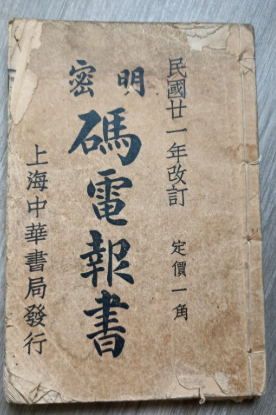 民國廿一年改訂
定價一角
明密
碼電報書
上海中華書局發行